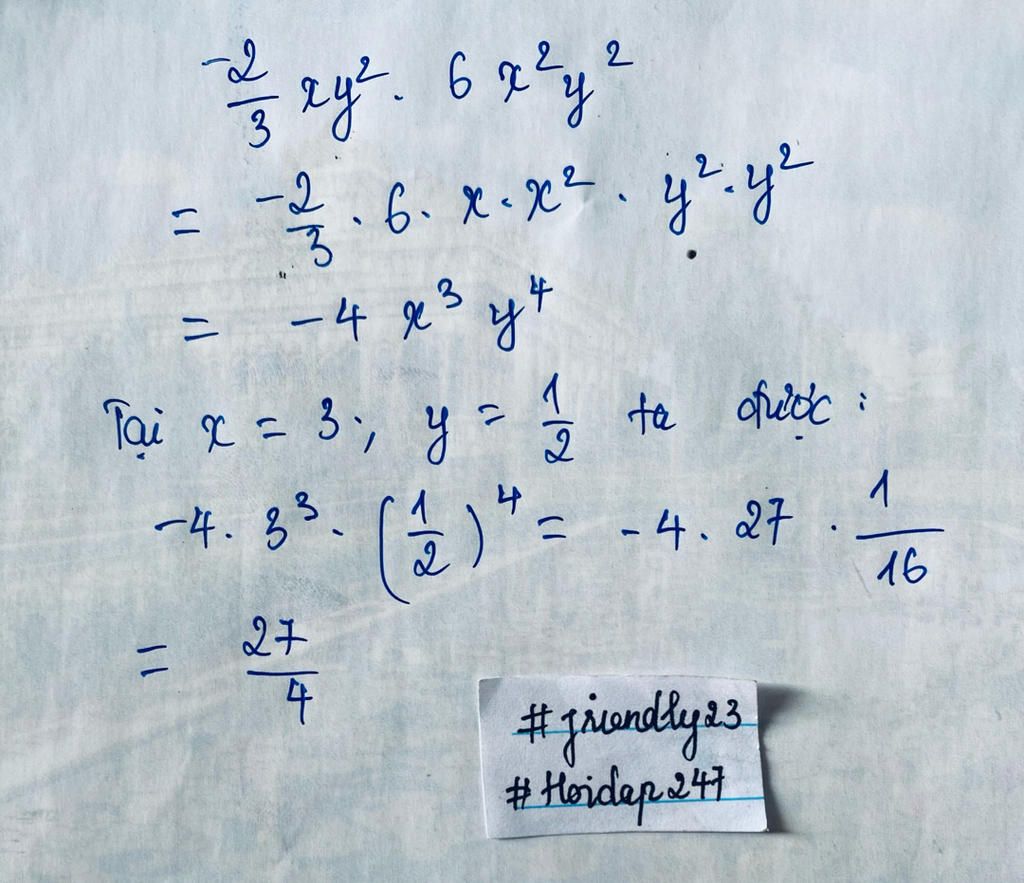 -2/3 xy² . 6 x²y²
= -2/3 . 6 . x . x² . y² . y²
= -4 x³ y⁴
Tại x = 3 ; y = 1/2 ta được :
-4 . 3³ . (1/2)⁴ = -4 . 27 . 1/16
= 27/4
#friendly23
#Hoidap247